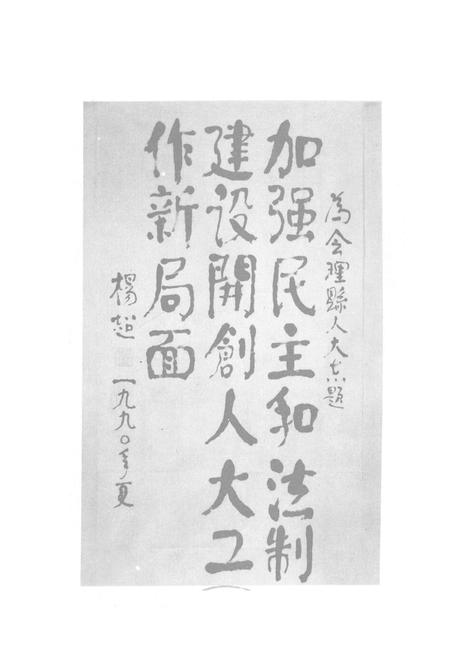 為会理縣人大志題
加强民主和法制
建设開創人大工
作新局面
楊超 一九九〇年夏